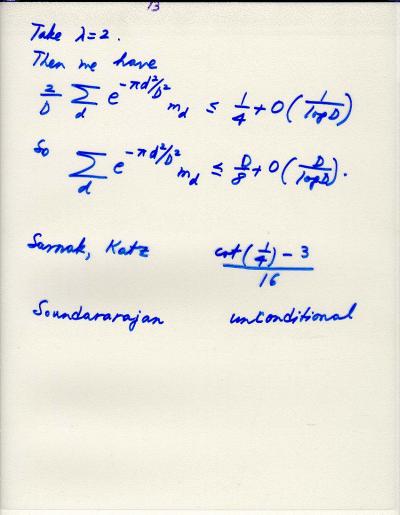 13
Take λ=2.
Then we have
2/D ∑_d e^{-πd²/D²} m_d ≤ 1/4 + O(1/log D)
So ∑_d e^{-πd²/D²} m_d ≤ D/8 + O(D/log D).
Sarnak, Katz (cot(1/4) - 3)/16
Soundararajan unconditional